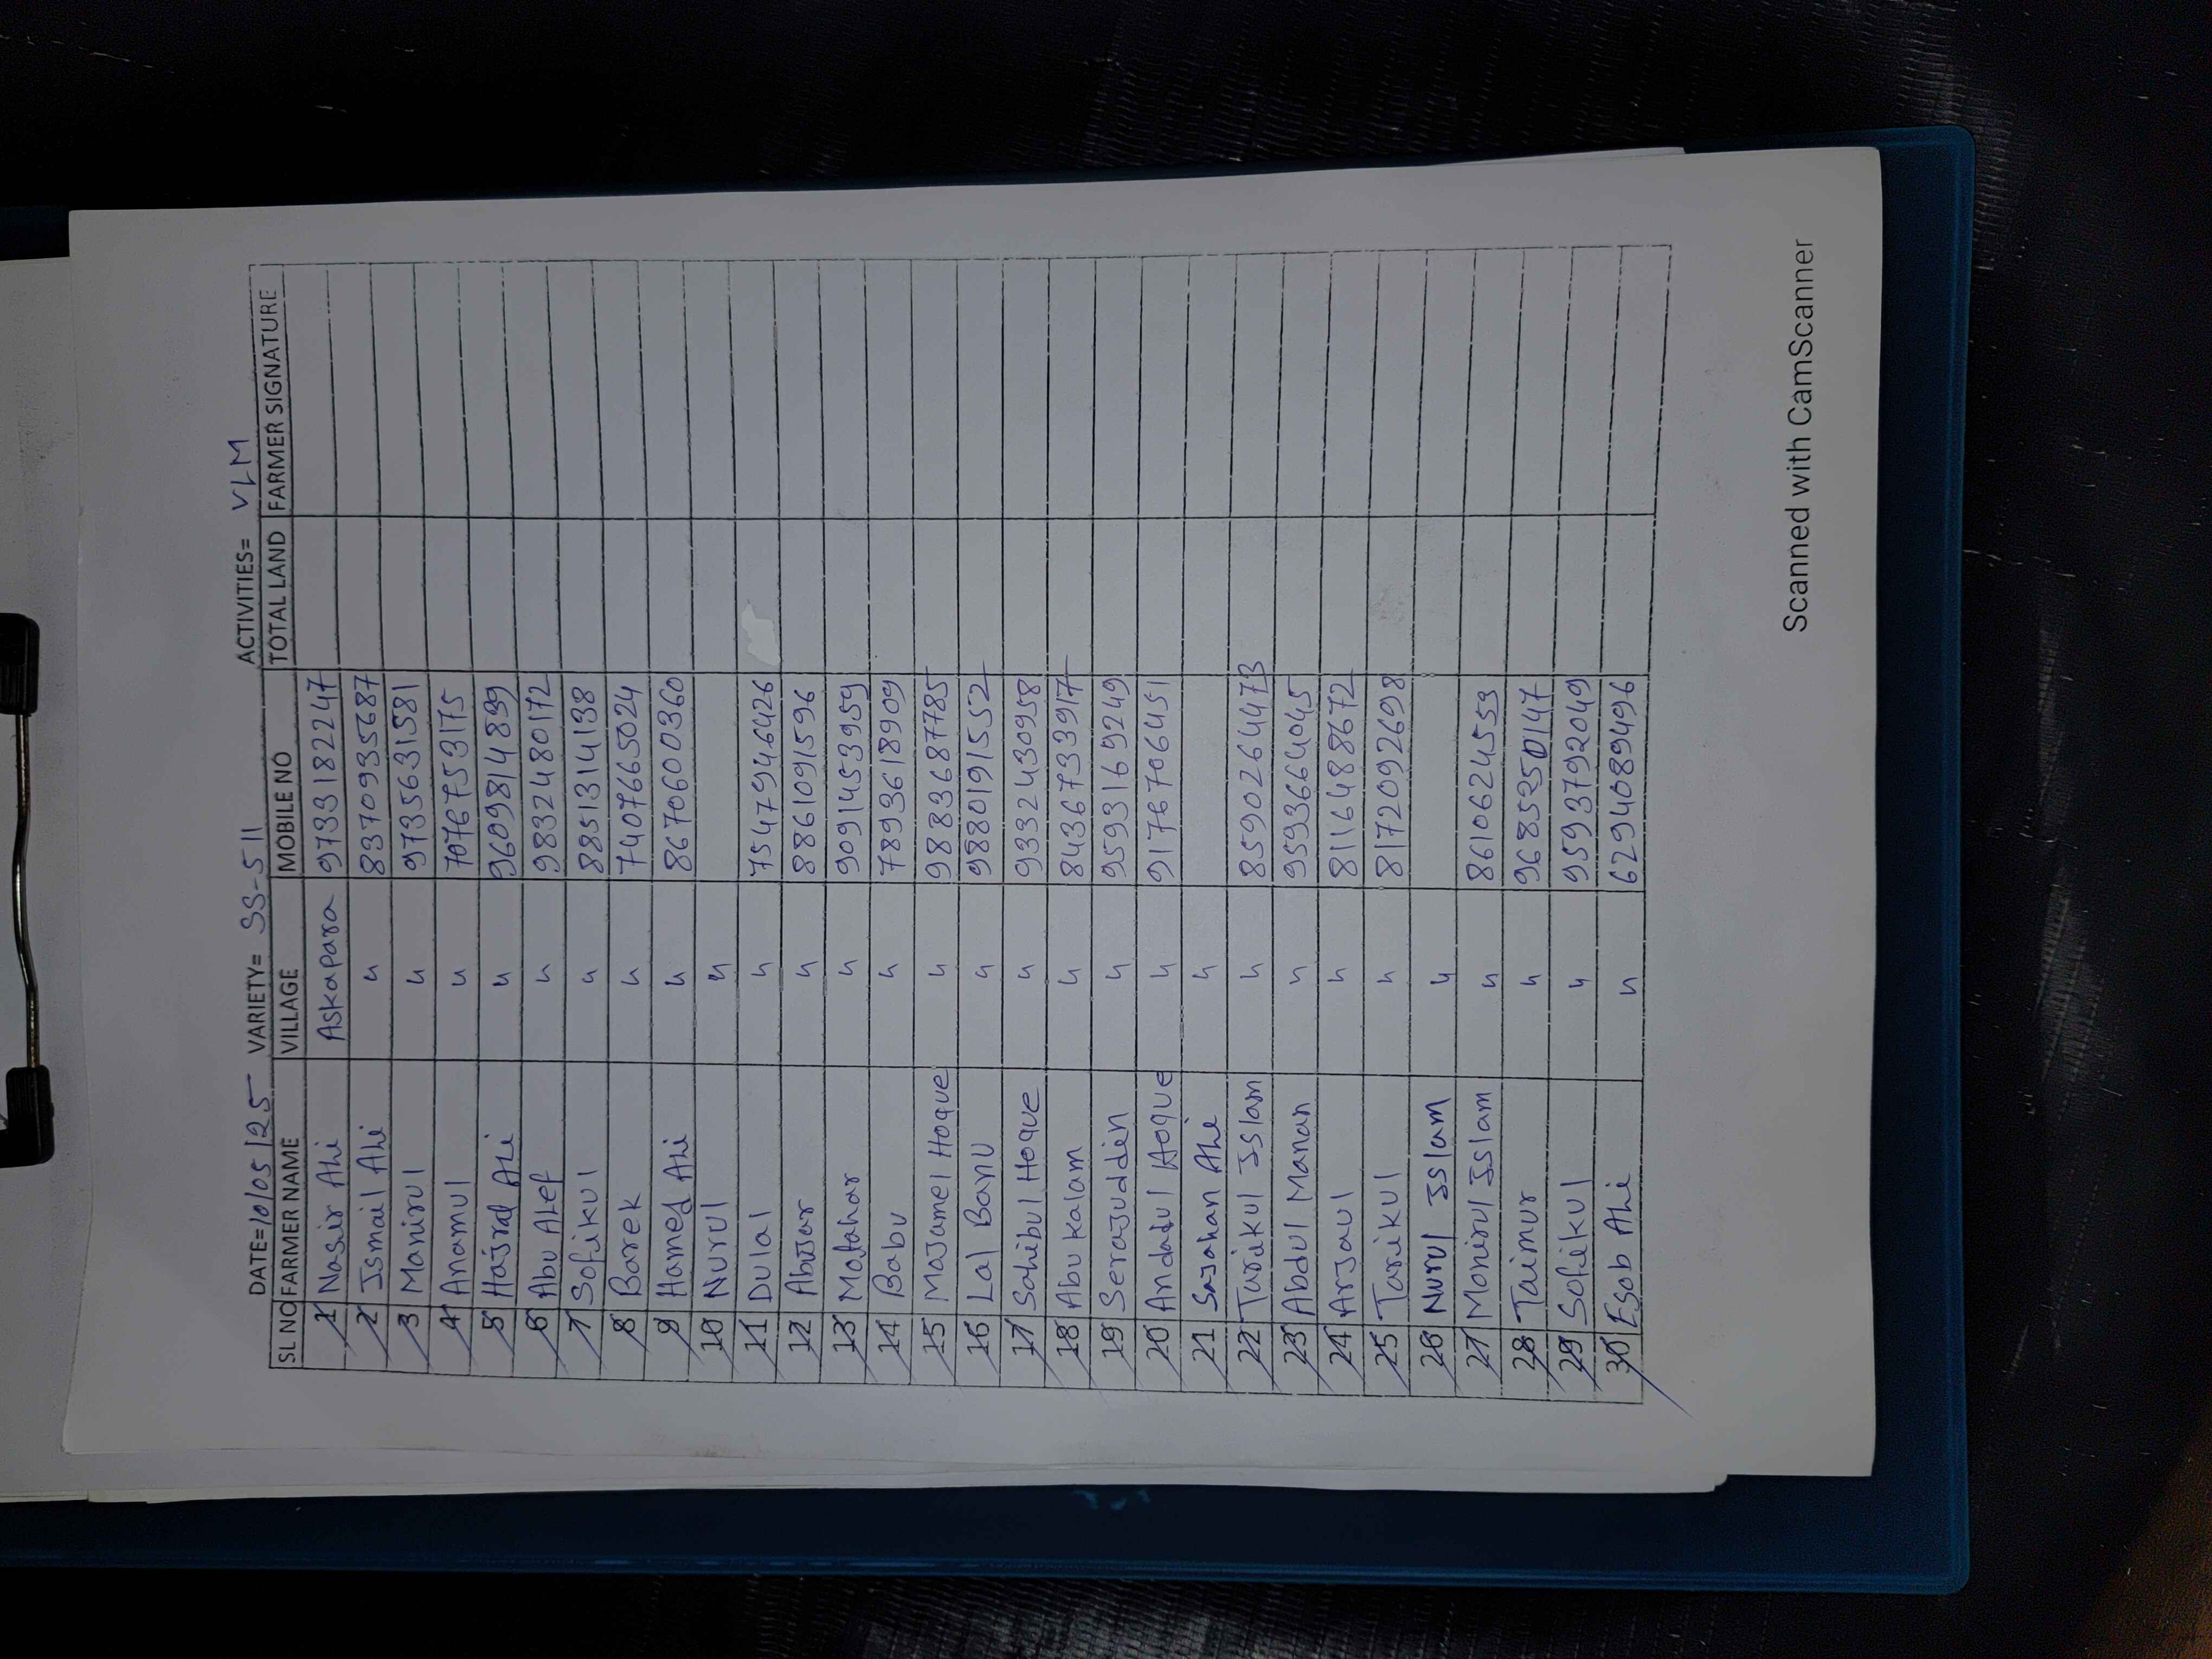 DATE=10/05/25 VARIETY= SS-511 ACTIVITIES= VLM
SL NO FARMER NAME VILLAGE MOBILE NO TOTAL LAND FARMER SIGNATURE
1 Nasir Ali Askapara 9733182247
2 Ismail Ali " 8370935687
3 Manirul " 9735631581
4 Anamul " 7076753175
5 Hajrat Ali " 9609814899
6 Abu ALef " 9832480172
7 Sofikul " 8851314138
8 Barek " 7407665024
9 Hamed Ali " 8670600360
10 Nurul "
11 Dulal " 7547946426
12 Abujar " 8861091596
13 Motahar " 9091453959
14 Babu " 7893618909
15 Majamel Hoque " 9883687785
16 Lal Banu " 9880191552
17 Sahibul Hoque " 9332430958
18 Abu Kalam " 8436733917
19 Serajuddin " 9593169249
20 Andadul Hoque " 9176706451
21 Sajahan Ali "
22 Tarikul Islam " 8590264473
23 Abdul Manan " 9593664045
24 Arjaul " 8116488672
25 Tarikul " 8172092698
26 Nurul Islam "
27 Monirul Islam " 8610624559
28 Taimur " 9685250147
29 Sofikul " 9593792049
30 Esob Ali " 6294089496
Scanned with CamScanner